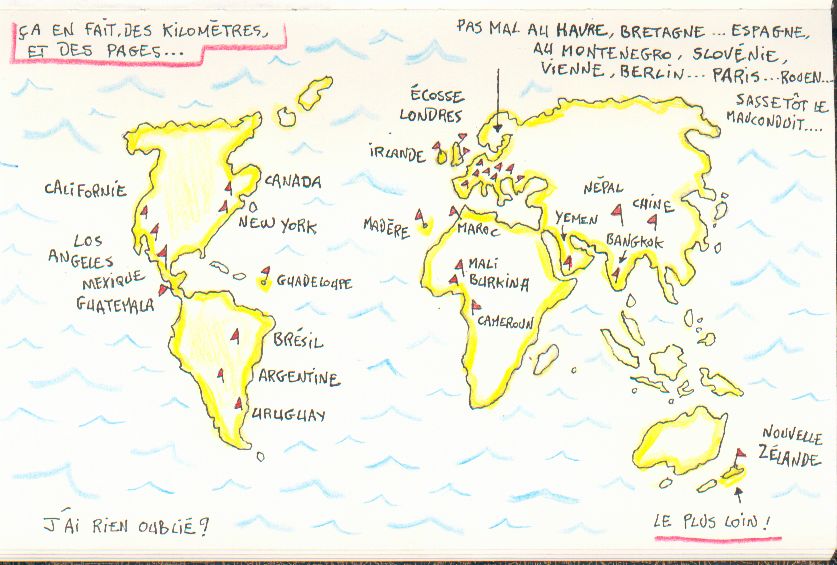 ÇA EN FAIT, DES KILOMÈTRES,
ET DES PAGES...
PAS MAL AU HAVRE, BRETAGNE ... ESPAGNE,
AU MONTENEGRO, SLOVÉNIE,
VIENNE, BERLIN... PARIS...ROUEN...
SASSETÔT LE
MAUCONDUIT....
ÉCOSSE
LONDRES
IRLANDE
CALIFORNIE
CANADA
NEW YORK
LOS
ANGELES
MEXIQUE
GUATEMALA
GUADELOUPE
BRÉSIL
ARGENTINE
URUGUAY
MADÈRE
MAROC
MALI
BURKINA
CAMEROUN
YEMEN
NÉPAL
CHINE
BANGKOK
NOUVELLE
ZÉLANDE
LE PLUS LOIN !
J'AI RIEN OUBLIÉ ?